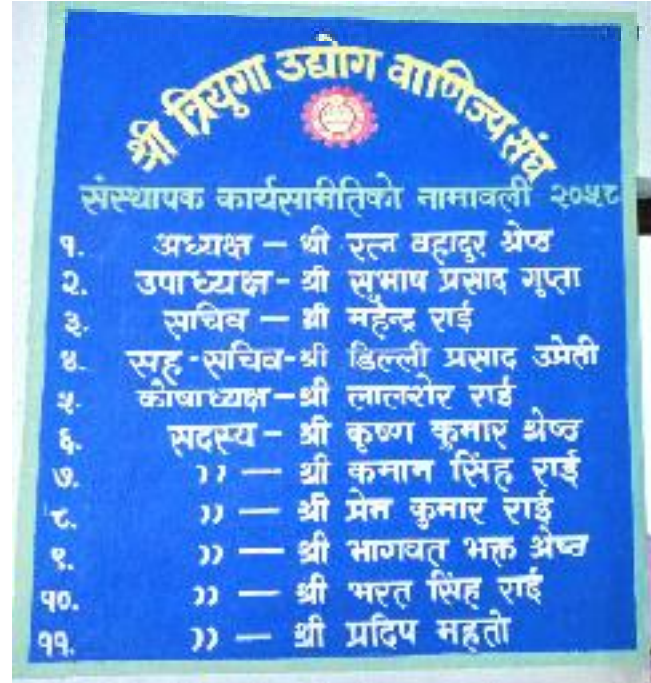 श्री त्रियुगा उद्योग वाणिज्य संघ
संस्थापक कार्यसमितिको नामावली २०५८
१. अध्यक्ष – श्री रत्न वहादुर श्रेष्ठ
२. उपाध्यक्ष - श्री सुभाष प्रसाद गुप्ता
३. सचिव – श्री महेन्द्र राई
४. सह-सचिव-श्री डिल्ली प्रसाद उप्रेती
५. कोषाध्यक्ष–श्री लालशेर राई
६. सदस्य – श्री कृष्ण कुमार श्रेष्ठ
७. ,, — श्री कमान सिंह राई
८. ,, — श्री प्रेम कुमार राई
९. ,, — श्री भागवत भक्त श्रेष्ठ
१०. ,, — श्री भरत सिंह राई
११. ,, — श्री प्रदिप महतो